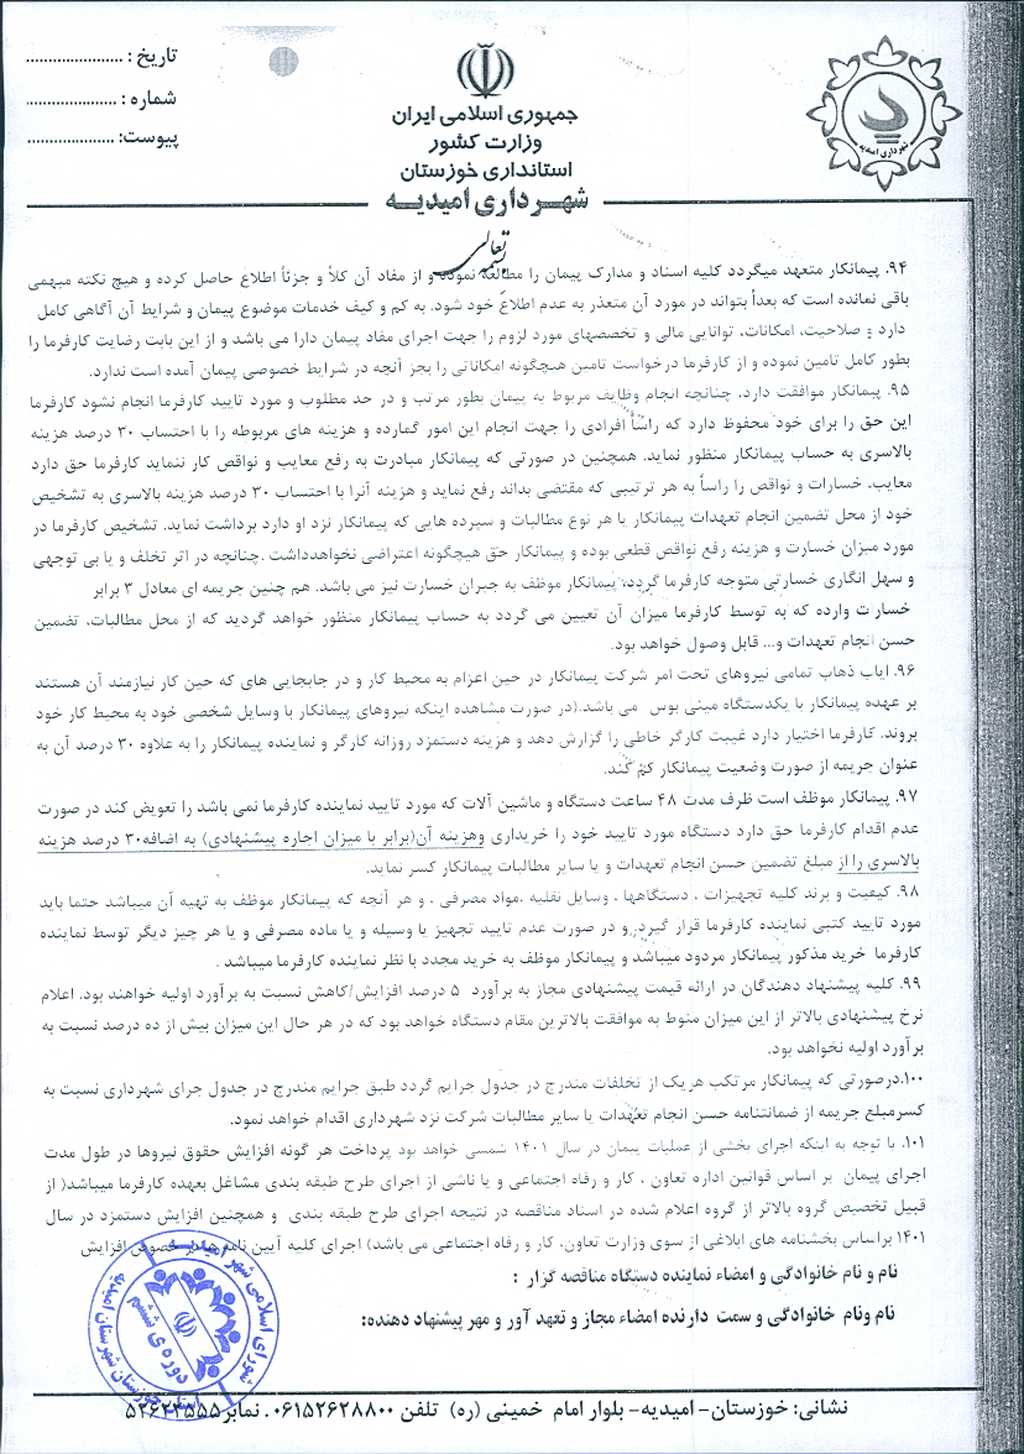 تاریخ : ......................
شماره : .....................
پیوست: ....................
جمهوری اسلامی ایران
وزارت کشور
استانداری خوزستان
شهرداری امیدیه
شهرداری امیدیه
بسمه تعالی
۹۴. پیمانکار متعهد میگردد کلیه اسناد و مدارک پیمان را مطالعه نموده و از مفاد آن کلاً و جزئاً اطلاع حاصل کرده و هیچ نکته مبهمی
باقی نمانده است که بعداً بتواند در مورد آن متعذر به عدم اطلاع خود شود. به کم و کیف خدمات موضوع پیمان و شرایط آن آگاهی کامل
دارد و صلاحیت، امکانات، توانایی مالی و تخصصهای مورد لزوم را جهت اجرای مفاد پیمان دارا می باشد و از این بابت رضایت کارفرما را
بطور کامل تامین نموده و از کارفرما درخواست تامین هیچگونه امکاناتی را بجز آنچه در شرایط خصوصی پیمان آمده است ندارد.
۹۵. پیمانکار موافقت دارد، چنانچه انجام وظایف مربوط به پیمان بطور مرتب و در حد مطلوب و مورد تایید کارفرما انجام نشود کارفرما
این حق را برای خود محفوظ دارد که راساً افرادی را جهت انجام این امور گمارده و هزینه های مربوطه را با احتساب ۳۰ درصد هزینه
بالاسری به حساب پیمانکار منظور نماید. همچنین در صورتی که پیمانکار مبادرت به رفع معایب و نواقص کار ننماید کارفرما حق دارد
معایب، خسارات و نواقص را راساً به هر ترتیبی که مقتضی بداند رفع نماید و هزینه آنرا با احتساب ۳۰ درصد هزینه بالاسری به تشخیص
خود از محل تضمین انجام تعهدات پیمانکار یا هر نوع مطالبات و سپرده هایی که پیمانکار نزد او دارد برداشت نماید. تشخیص کارفرما در
مورد میزان خسارت و هزینه رفع نواقص قطعی بوده و پیمانکار حق هیچگونه اعتراضی نخواهدداشت .چنانچه در اثر تخلف و یا بی توجهی
و سهل انگاری خسارتی متوجه کارفرما گردد، پیمانکار موظف به جبران خسارت نیز می باشد. هم چنین جریمه ای معادل ۳ برابر
خسارت وارده که به توسط کارفرما میزان آن تعیین می گردد به حساب پیمانکار منظور خواهد گردید که از محل مطالبات، تضمین
حسن انجام تعهدات و... قابل وصول خواهد بود.
۹۶. ایاب ذهاب تمامی نیروهای تحت امر شرکت پیمانکار در حین اعزام به محیط کار و در جابجایی های که حین کار نیازمند آن هستند
بر عهده پیمانکار با یکدستگاه مینی بوس می باشد.(در صورت مشاهده اینکه نیروهای پیمانکار با وسایل شخصی خود به محیط کار خود
بروند. کارفرما اختیار دارد غیبت کارگر خاطی را گزارش دهد و هزینه دستمزد روزانه کارگر و نماینده پیمانکار را به علاوه ۳۰ درصد آن به
عنوان جریمه از صورت وضعیت پیمانکار کم کند.
۹۷. پیمانکار موظف است ظرف مدت ۴۸ ساعت دستگاه و ماشین آلات که مورد تایید نماینده کارفرما نمی باشد را تعویض کند در صورت
عدم اقدام کارفرما حق دارد دستگاه مورد تایید خود را خریداری وهزینه آن(برابر با میزان اجاره پیشنهادی) به اضافه۳۰ درصد هزینه
بالاسری را از مبلغ تضمین حسن انجام تعهدات و یا سایر مطالبات پیمانکار کسر نماید.
۹۸. کیفیت و برند کلیه تجهیزات ، دستگاهها ، وسایل نقلیه ،مواد مصرفی ، و هر آنچه که پیمانکار موظف به تهیه آن میباشد حتما باید
مورد تایید کتبی نماینده کارفرما قرار گیرد و در صورت عدم تایید تجهیز یا وسیله و یا ماده مصرفی و یا هر چیز دیگر توسط نماینده
کارفرما خرید مذکور پیمانکار مردود میباشد و پیمانکار موظف به خرید مجدد با نظر نماینده کارفرما میباشد .
۹۹. کلیه پیشنهاد دهندگان در ارائه قیمت پیشنهادی مجاز به برآورد ۵ درصد افزایش/کاهش نسبت به برآورد اولیه خواهند بود. اعلام
نرخ پیشنهادی بالاتر از این میزان منوط به موافقت بالاترین مقام دستگاه خواهد بود که در هر حال این میزان بیش از ده درصد نسبت به
برآورد اولیه نخواهد بود.
۱۰۰.درصورتی که پیمانکار مرتکب هریک از تخلفات مندرج در جدول جرایم گردد طبق جرایم مندرج در جدول جرای شهرداری نسبت به
کسرمبلغ جریمه از ضمانتنامه حسن انجام تعهدات یا سایر مطالبات شرکت نزد شهرداری اقدام خواهد نمود.
۱۰۱. با توجه به اینکه اجرای بخشی از عملیات پیمان در سال ۱۴۰۱ شمسی خواهد بود پرداخت هر گونه افزایش حقوق نیروها در طول مدت
اجرای پیمان بر اساس قوانین اداره تعاون ، کار و رفاه اجتماعی و یا ناشی از اجرای طرح طبقه بندی مشاغل بعهده کارفرما میباشد( از
قبیل تخصیص گروه بالاتر از گروه اعلام شده در اسناد مناقصه در نتیجه اجرای طرح طبقه بندی و همچنین افزایش دستمزد در سال
۱۴۰۱ براساس بخشنامه های ابلاغی از سوی وزارت تعاون، کار و رفاه اجتماعی می باشد) اجرای کلیه آیین نامه ها در خصوص افزایش
نام و نام خانوادگی و امضاء نماینده دستگاه مناقصه گزار :
نام ونام خانوادگی و سمت دارنده امضاء مجاز و تعهد آور و مهر پیشنهاد دهنده:
شورای اسلامی شهر امیدیه
دوره ی ششم
استان خوزستان شهرستان امیدیه
نشانی: خوزستان- امیدیه- بلوار امام خمینی (ره) تلفن ۰۶۱۵۲۶۲۸۸۰۰. نمابر۵۲۶۲۳۵۵۵